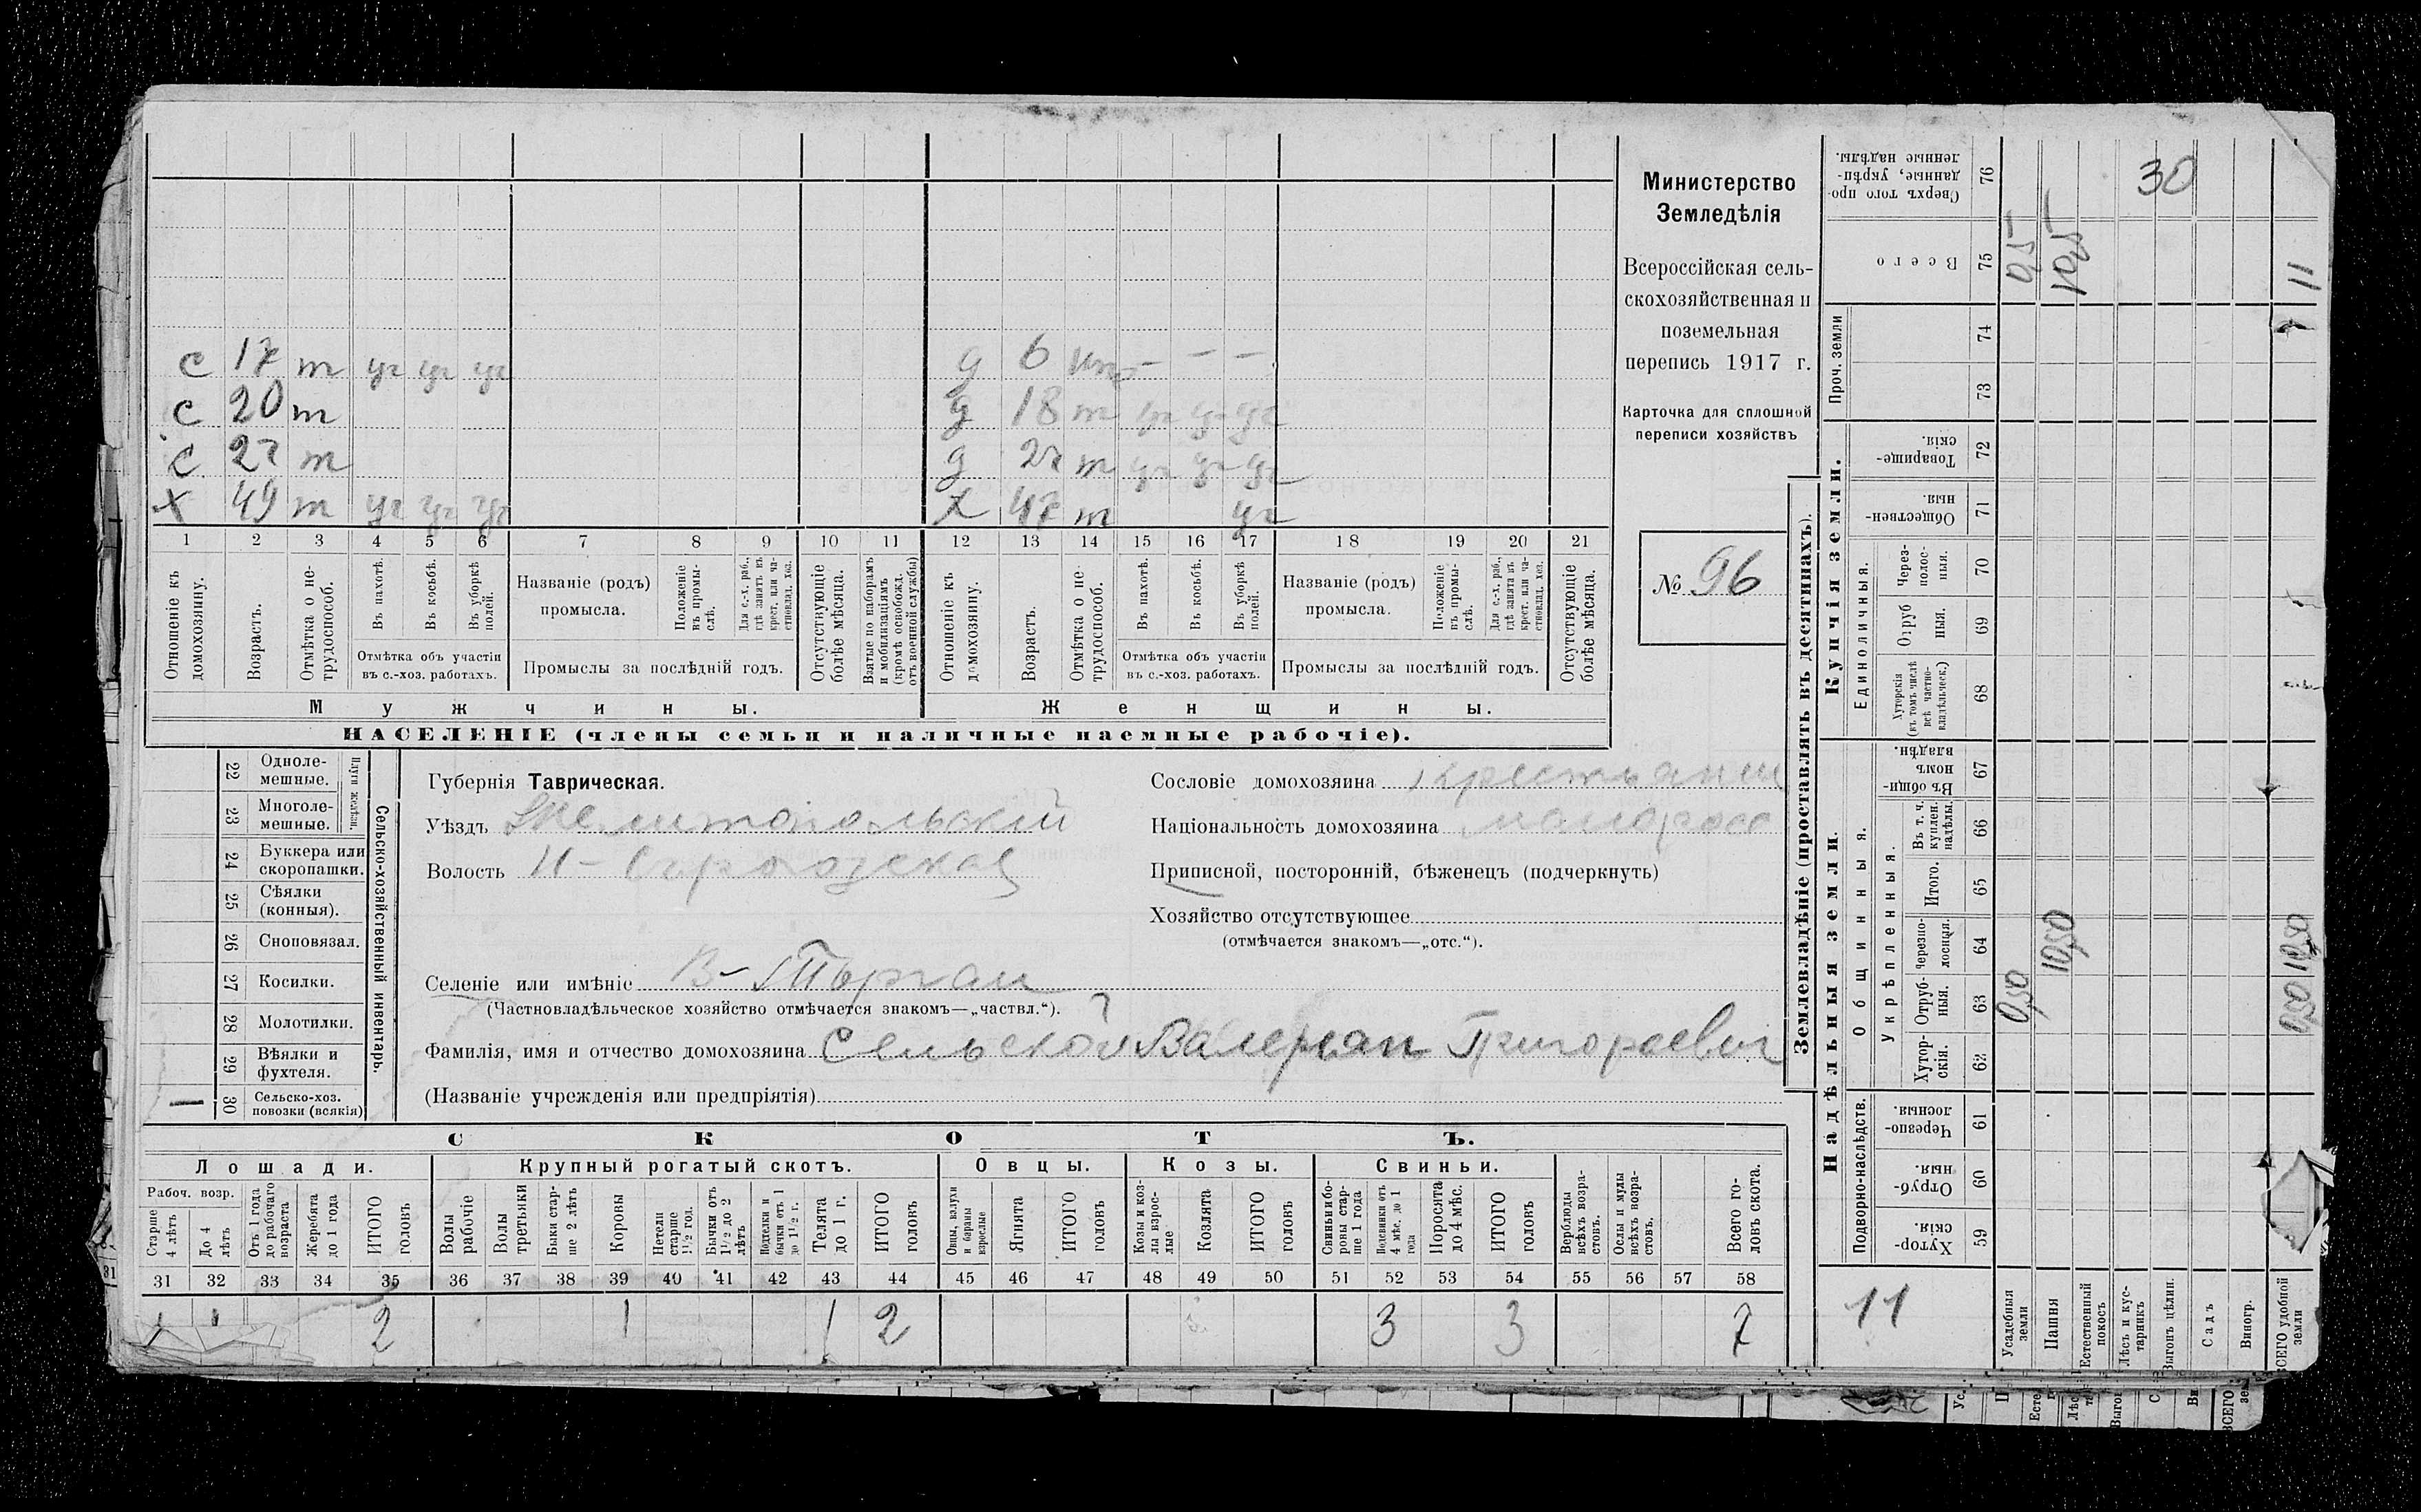 с 17 т уч уч уч
с 20 т
с 22 т
х 49 т уч уч уч
д 6 — — —
д 18 т уч уч уч
д т уч уч уч
х 47 т уч
1 2 3 4 5 6 7 8 9 10 11 12 13 14 15 16 17 18 19 20 21
Отношеніе къ домохозяину.
Возрастъ.
Отмѣтка о не-трудоспособ.
Въ пахотѣ.
Въ косьбѣ.
Въ уборкѣ полей.
Отмѣтка объ участіи въ с.-хоз. работахъ.
Названіе (родъ) промысла.
Положеніе въ промы-слѣ.
Для с.-х. раб., гдѣ занятъ въ крест. или ча-стновлад. хоз.
Промыслы за послѣдній годъ.
Отсутствующіе болѣе мѣсяца.
Взятые по наборамъ и мобилизаціямъ (кромѣ освобожд. отъ военной службы)
Отношеніе къ домохозяину.
Возрастъ.
Отмѣтка о не-трудоспособ.
Въ пахотѣ.
Въ косьбѣ.
Въ уборкѣ полей.
Отмѣтка объ участіи въ с.-хоз. работахъ.
Названіе (родъ) промысла.
Положеніе въ промы-слѣ.
Для с.-х. раб., гдѣ занята въ крест. или ча-стновлад. хоз.
Промыслы за послѣдній годъ.
Отсутствующіе болѣе мѣсяца.
Мужчины.
Женщины.
НАСЕЛЕНІЕ (члены семьи и наличные наемные рабочіе).
Министерство
Земледѣлія
Всероссійская сель-
скохозяйственная и
поземельная
перепись 1917 г.
Карточка для сплошной
переписи хозяйствъ
№ 96
22 Одноле-мешные.
23 Многоле-мешные.
Плуги желѣзн.
24 Буккера или скоропашки.
25 Сѣялки (конныя).
26 Сноповязал.
27 Косилки.
28 Молотилки.
29 Вѣялки и фухтеля.
30 Сельско-хоз. повозки (всякія) 1
Сельско-хозяйственный инвентарь.
Губернія Таврическая.
Уѣздъ Мелитопольскій
Волость Н-Серогозская
Селеніе или имѣніе В-Торгаи
(Частновладѣльческое хозяйство отмѣчается знакомъ—„частвл.“).
Фамилія, имя и отчество домохозяина Сельской Валерьан Григораевич
(Названіе учрежденія или предпріятія)
Сословіе домохозяина крестьянин
Національность домохозяина малоросс
Приписной, посторонній, бѣженецъ (подчеркнуть)
Хозяйство отсутствующее
(отмѣчается знакомъ—„отс.“).
СКОТЪ.
Лошади.
Крупный рогатый скотъ.
Овцы.
Козы.
Свиньи.
Рабоч. возр.
Старше 4 лѣтъ
До 4 лѣтъ
Отъ 1 года до рабочаго возраста
Жеребята до 1 года
ИТОГО головъ
Волы рабочіе
Волы третьяки
Быки стар-ше 2 лѣтъ
Коровы
Нетели старше 1½ год.
Бычки отъ 1½ до 2 лѣтъ
Подтелки и бычки отъ 1 до 1½ г.
Телята до 1 г.
ИТОГО головъ
Овцы, валухи и бараны взрослые
Ягнята
ИТОГО головъ
Козы и коз-лы взрос-лые
Козлята
ИТОГО головъ
Свиньи и бо-ровы стар-ше 1 года
Подсвинки отъ 4 мѣс. до 1 года
Поросята до 4 мѣс.
ИТОГО головъ
Верблюды всѣхъ возра-стовъ.
Ослы и мулы всѣхъ возра-стовъ.
Всего го-ловъ скота.
31 32 33 34 35 36 37 38 39 40 41 42 43 44 45 46 47 48 49 50 51 52 53 54 55 56 57 58
1 1 2 1 1 2 3 3 7
Землевладѣніе (проставлять въ десятинахъ).
Надѣльныя земли.
Купчія земли.
Проч. земли
Подворно-наслѣдств.
Общинныя.
Укрѣпленныя.
Единоличныя.
Хутор-скія. 59
Отруб-ныя. 60
Черезпо-лосныя. 61
Хутор-скія. 62
Отруб-ныя. 63
Черезпо-лосныя. 64
Итого. 65
Въ т. ч. куплен. надѣлы. 66
Въ общи-номъ владѣн. 67
Хуторскія (въ томъ числѣ всѣ частно-владѣльческ.) 68
Отруб ныя. 69
Через-полос-ныя. 70
Обществен-ныя. 71
Товарище-скія. 72
73
74
Всего 75
Сверхъ того про-данные, укрѣп-ленные надѣлы. 76
11
Усадебныя земли 050 05
Пашня 1050 105
Естественный покосъ
Лѣсъ и кус-тарникъ
Выгонъ цѣлин. 30
Садъ
Виногр.
ВСЕГО удобной земли 050 1050 11